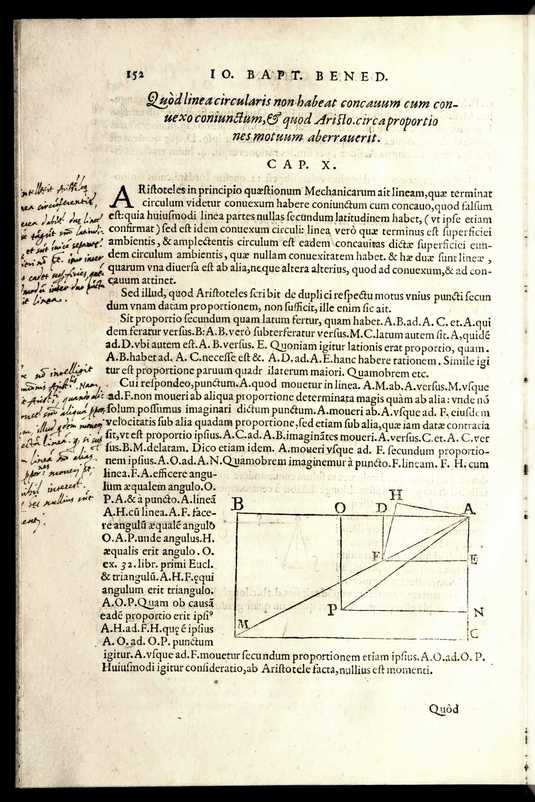 152 IO. BAPT. BENED.
Quòd linea circularis non habeat concauum cum con-
uexo coniunctum, & quod Aristo. circa proportio
nes motuum aberrauerit.
CAP. X.
ARistoteles in principio quæstionum Mechanicarum ait lineam, quæ terminat
circulum videtur conuexum habere coniunctum cum concauo, quod falsum
est: quia huiusmodi linea partes nullas secundum latitudinem habet, (vt ipse etiam
confirmat) sed est idem conuexum circuli: linea verò quæ terminus est superficiei
ambientis, & amplectentis circulum est eadem concauitas dictæ superficiei eun-
dem circulum ambientis, quæ nullam conuexitatem habet. & hæ duæ sunt lineæ,
quarum vna diuersa est ab alia, neque altera alterius, quod ad conuexum, & ad con-
cauum attinet.
Sed illud, quod Aristoteles scribit de duplici respectu motus vnius puncti secun
dum vnam datam proportionem, non sufficit, ille enim sic ait.
Sit proportio secundum quam latum fertur, quam habet. A.B. ad A. C. et. A. qui
dem feratur versus. B: A.B. verò subterferatur versus. M.C. latum autem sit. A, quidē
ad. D. vbi autem est. A.B. versus. E. Quoniam igitur lationis erat proportio, quam.
A.B. habet ad. A. C. necesse est &. A. D. ad. A. E. hanc habere rationem. Simile igi
tur est proportione paruum quadrilaterum maiori. Quamobrem etc.
Cui respondeo, punctum. A. quod mouetur in linea. A.M. ab. A. versus. M. vsque
ad. F. non moueri ab aliqua proportione determinata magis quàm ab alia: vnde nō
solum possumus imaginari dictum punctum. A. moueri ab. A. vsque ad. F. eiusdem
velocitatis sub alia quadam proportione, sed etiam sub alia, quæ iam datæ contraria
sit, vt est proportio ipsius. A.C. ad. A.B. imaginātes moueri. A. versus. C. et. A. C. ver
sus. B. M. delatam. Dico etiam idem. A. moueri vsque ad. F. secundum proportio-
nem ipsius. A.O. ad. A.N. Quamobrem imaginemur à puncto. F. lineam. F. H. cum
linea. F.A. efficere angu-
lum æqualem angulo. O.
P.A. & à puncto. A. lineā
A.H. cū linea. A.F. face-
re angulū æqualē angulo
O.A.P. vnde angulus. H.
æqualis erit angulo. O.
ex. 32. libr. primi Eucl.
& triangulū. A.H.F. ęqui
angulum erit triangulo.
A.O.P. Quam ob causā
eadē proportio erit ipsi⁹
A.H. ad. F.H. quę ē ipsius
A. O. ad. O. P. punctum
igitur. A. vsque ad. F. mouetur secundum proportionem etiam ipsius. A. O. ad. O. P.
Huiusmodi igitur consideratio, ab Aristotele facta, nullius est momenti.
B O D H A
F E
P N
M C
Quòd